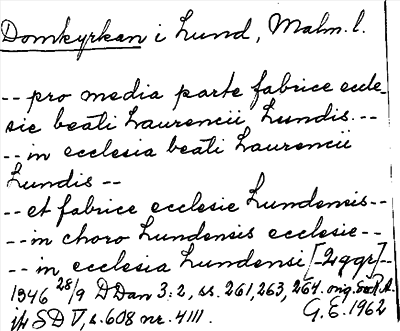 Domkyrkan i Lund, Malm. l.
-- pro media parte fabrice eccle-
sie beati Laurencii Lundis --
-- in ecclesia beati Laurencii
Lundis --
-- et fabrice ecclesie Lundensis --
-- in choro Lundensis ecclesie --
-- in ecclesia Lundensi [-2ggr]-
1346 28/9 DDan 3:2, ss. 261, 263, 264. orig.
jfr SD V, s. 608 nr. 4111. G.E. 1962